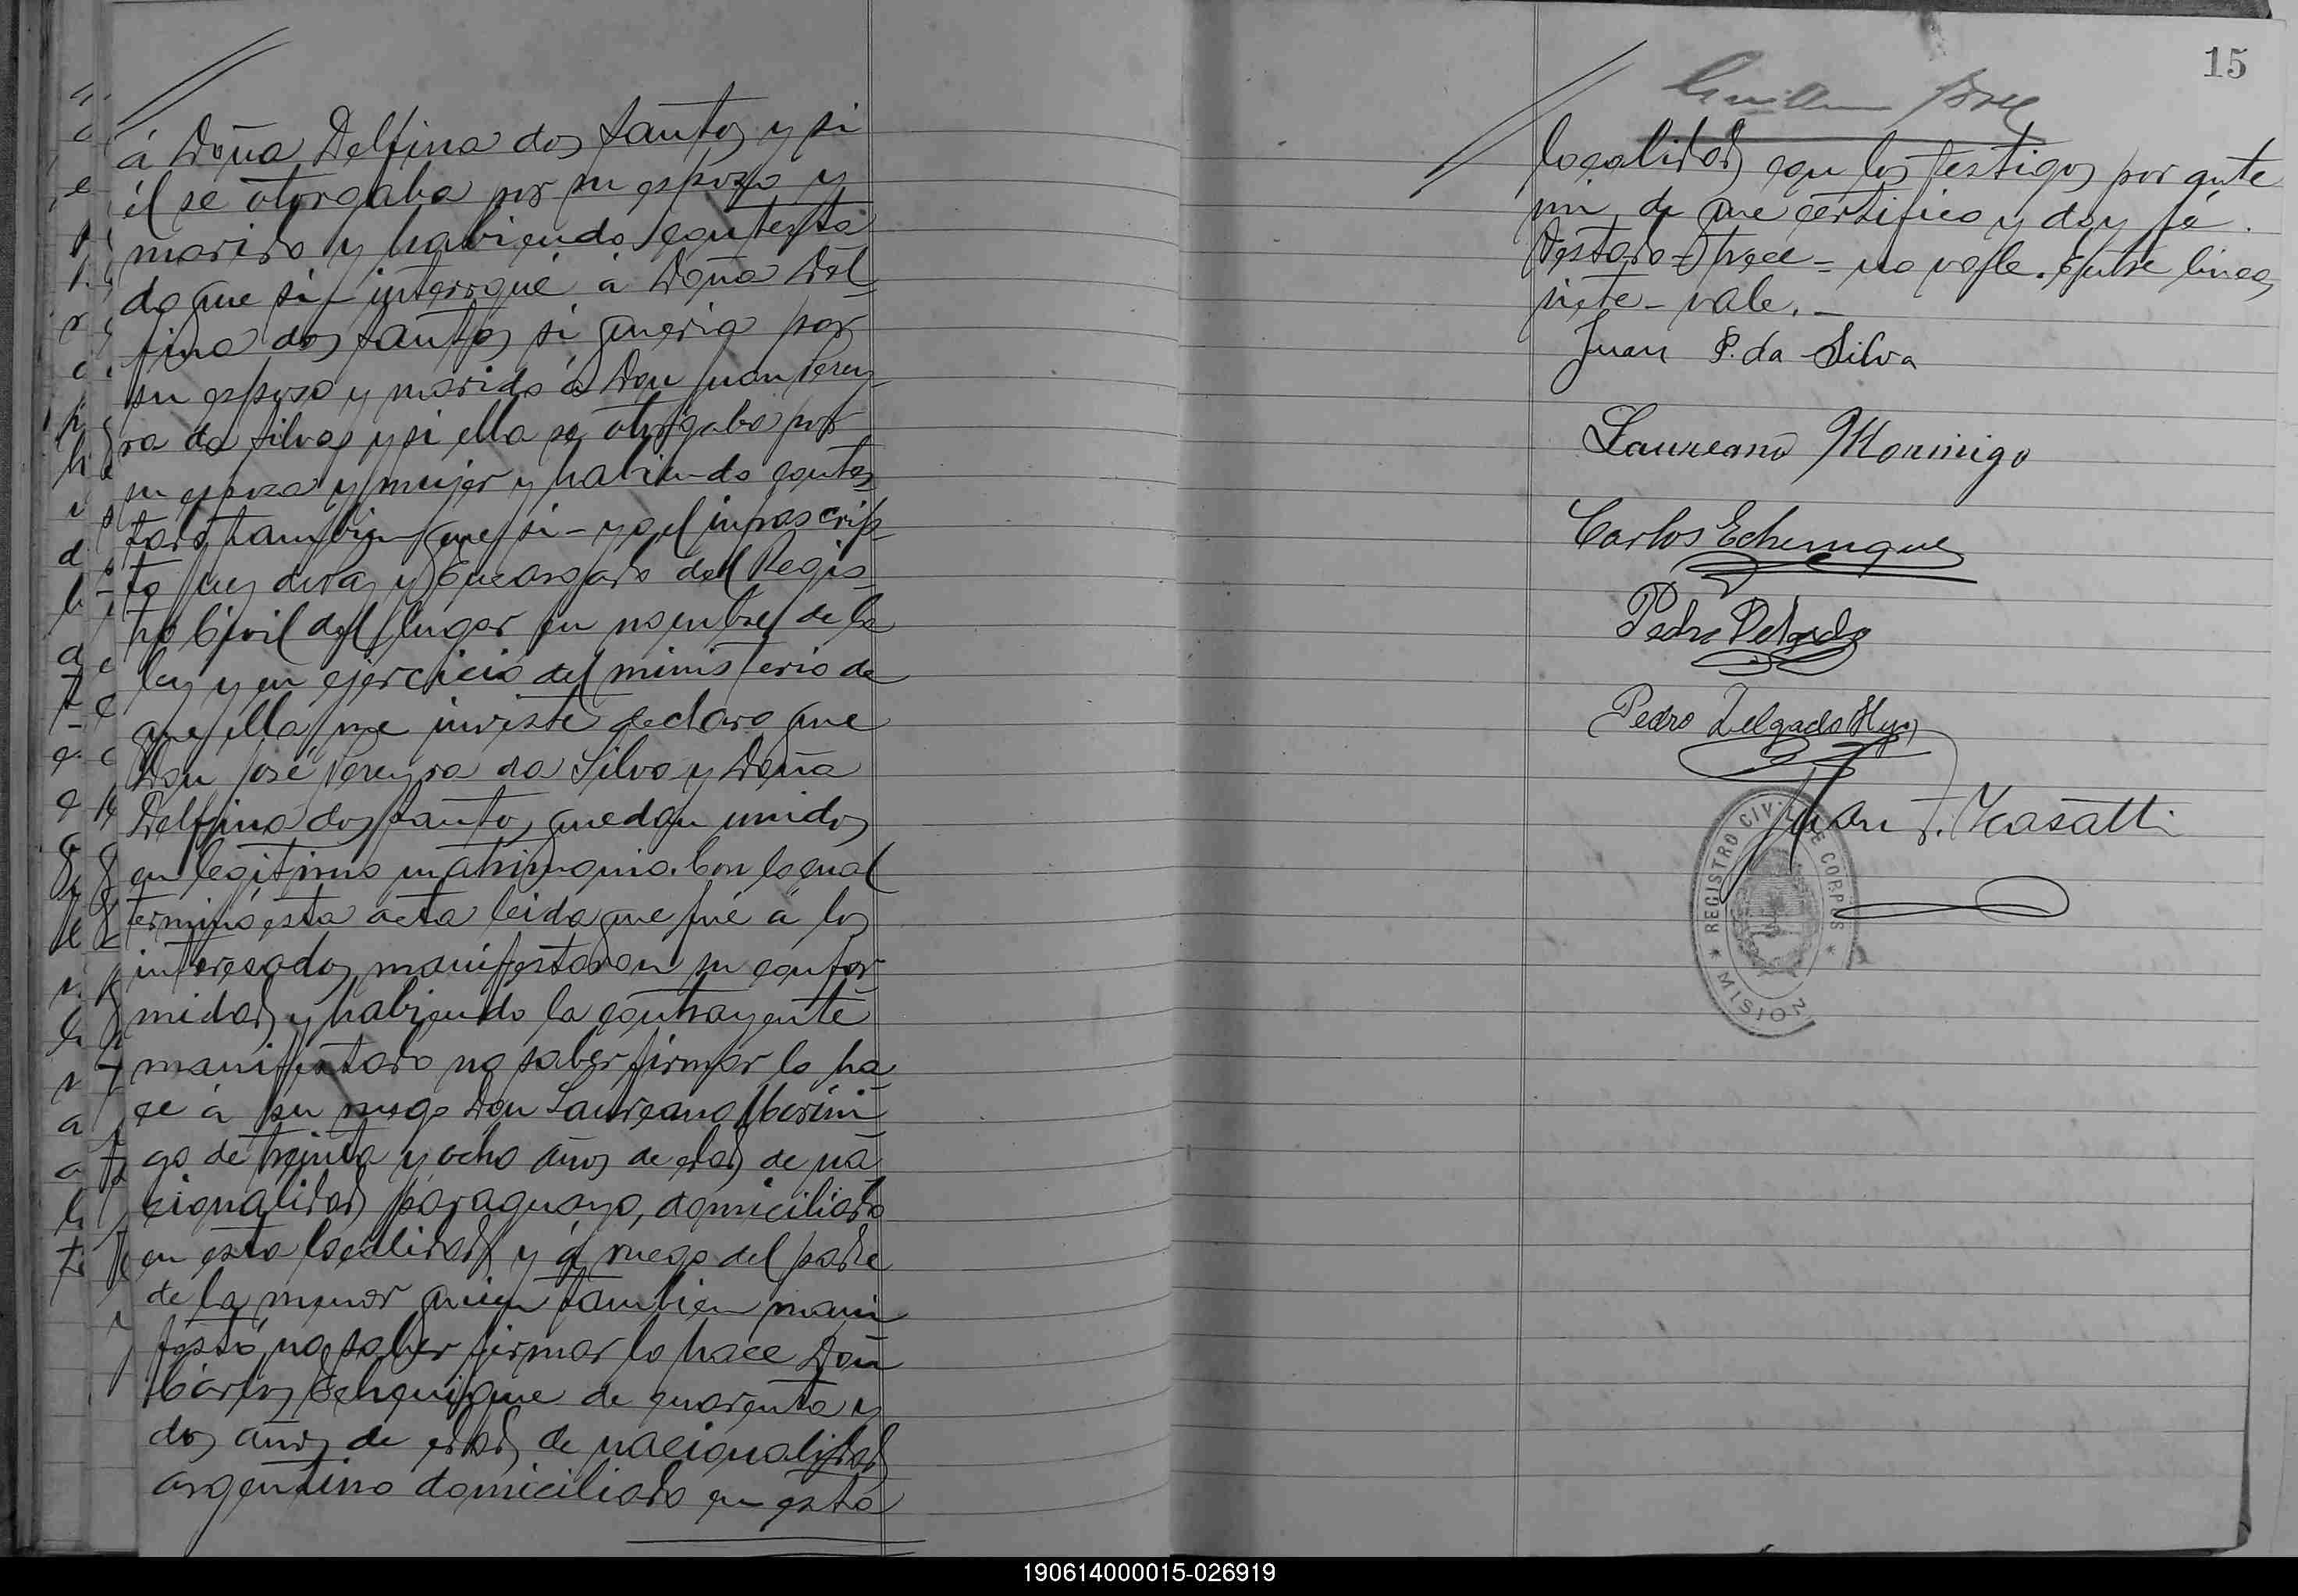 á Doña Delfina dos Santos y si
él se otorgaba por su esposo y
marido y habiendo contesta
do que si - interrogué á Doña Del
fina dos Santos si queria por
su esposo y marido á Don Juan Perey
ra da Silva y si ella se otorgaba por
su esposa y mujer y habiendo contes
tado tambien que si - yo el infrascrip
to Juez de Paz y Encargado del Regis
tro Civil del lugar en nombre de la
ley y en ejercicio del ministerio de
que ella me inviste declaro que
Don José Pereyra da Silva y Doña
Delfina dos Santos quedan unidos
en legitimo matrimonio. Con lo cual
terminó esta acta leida que fué á los
interesados manifestaron su confor
midad y habiendo la contrayente
manifestado no saber firmar lo ha
ce á su ruego Don Laureano Morini
go de treinta y ocho años de edad de na
cionalidad paraguayo, domiciliado
en esta localidad y á ruego del padre
de la menor quien tambien mani
festó no saber firmar lo hace Don
Cárlos Echenique de cuarenta y
dos años de edad de nacionalidad
argentino domiciliado en esta
15
localidad con los testigos por ante
mi, de que certifico y doy fé.
Testado = trece = no vale. Entre lineas
siete - vale. -
Juan P. da Silva
Laureano Morinigo
Carlos Echenique
Pedro Delgado
Pedro Delgado Hijo
Juan F. Casatti
REGISTRO CIVIL DE CORPUS
MISION
190614000015-026919